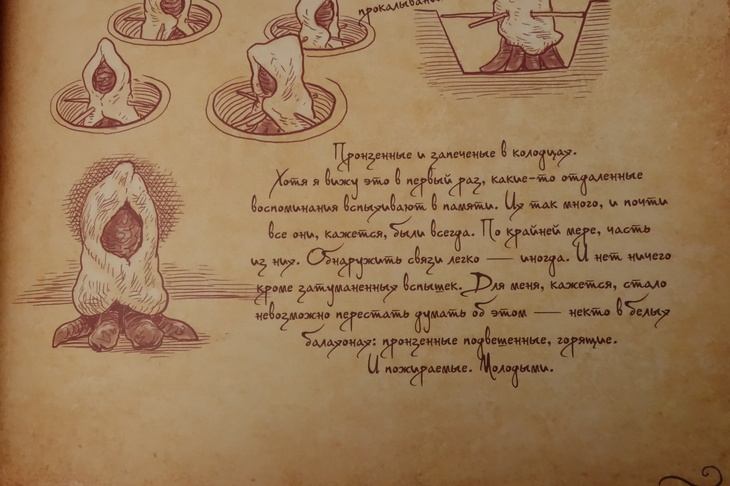 прокалывани
Пронзенные и запеченые в колодцах.
Хотя я вижу это в первый раз, какие-то отдаленные
воспоминания вспыхивают в памяти. Их так много, и почти
все они, кажется, были всегда. По крайней мере, часть
из них. Обнаружить связи легко — иногда. И нет ничего
кроме затуманенных вспышек. Для меня, кажется, стало
невозможно перестать думать об этом — некто в белых
балахонах: пронзенные подвешенные, горящие.
И пожираемые. Молодыми.